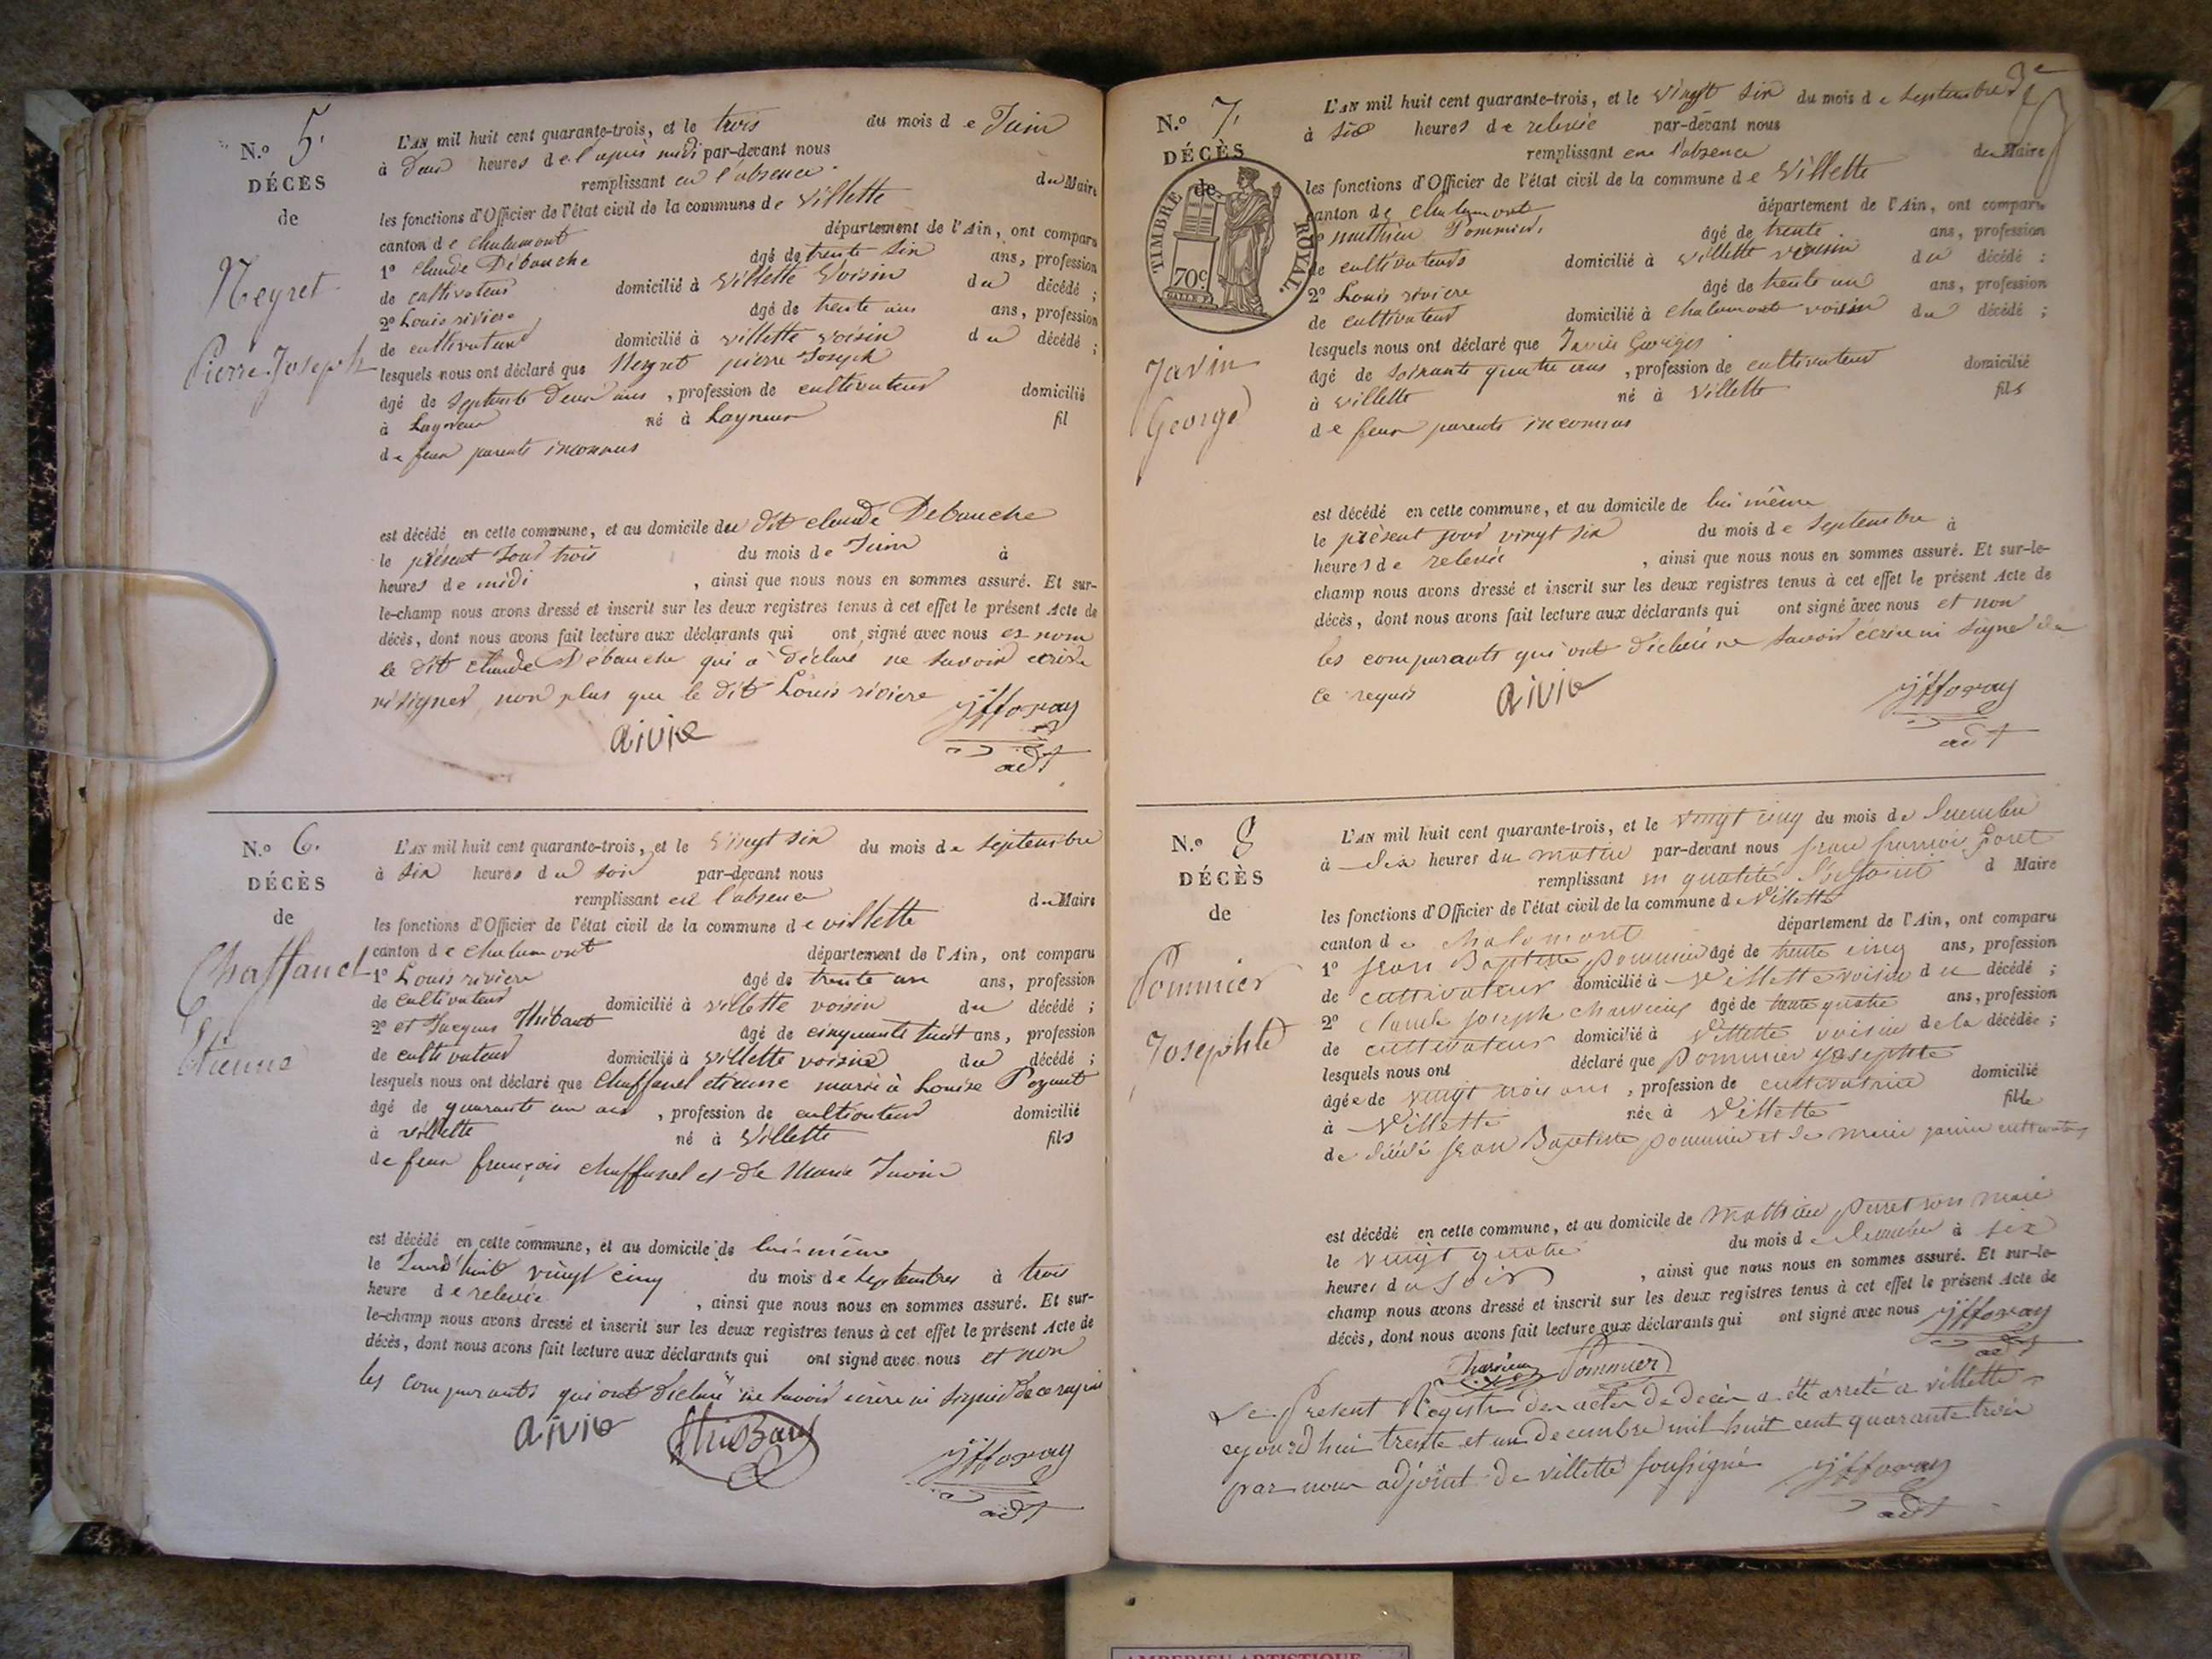 N.º 5.
DÉCÈS
de
Neyret
Pierre Joseph
L'AN mil huit cent quarante-trois, et le trois du mois de Juin
à deux heures de l'après midi par-devant nous
remplissant en l'absence du Maire
les fonctions d'Officier de l'état civil de la commune de Villette
canton de Chalamont département de l'Ain, ont comparu
1º Claude Débauche âgé de trente six ans, profession
de cultivateur domicilié à Villette Voisin du décédé ;
2º Louis riviere âgé de trente ans ans, profession
de cultivateur domicilié à villette voisin du décédé ;
lesquels nous ont déclaré que Neyret pierre Joseph
âgé de septente deux ans , profession de cultivateur domicilié
à Lagneux né à Lagneux fil
de feux parents inconnus
est décédé en cette commune, et au domicile du dit claude Debauche
le présent Jour trois du mois de Juin à
heures de midi , ainsi que nous nous en sommes assuré. Et sur-
le-champ nous avons dressé et inscrit sur les deux registres tenus à cet effet le présent Acte de
décès, dont nous avons fait lecture aux déclarants qui ont signé avec nous et non
le dit claude Debauche qui a déclaré ne savoir ecrire
ni signer non plus que le dit Louis riviere
aivie
adt
N.º 6.
DÉCÈS
de
Chaffanel
Etienne
L'AN mil huit cent quarante-trois, et le Vingt six du mois de septembre
à six heures du soir par-devant nous
remplissant en l'absence du Maire
les fonctions d'Officier de l'état civil de la commune de villette
canton de Chalamont département de l'Ain, ont comparu
1º Louis riviere âgé de trente un ans, profession
de cultivateur domicilié à villette voisin du décédé ;
2º et Jacques Thibaut âgé de cinquante huit ans, profession
de cultivateur domicilié à villette voisin du décédé ;
lesquels nous ont déclaré que Chaffanel etienne marié à Louise
âgé de quarante un ans , profession de cultivateur domicilié
à villette né à Villette fils
de feux françois chaffanel et de Marie Javin
est décédé en cette commune, et au domicile de lui même
le Jourd'huit vingt cinq du mois de septembre à trois
heure de relevée , ainsi que nous nous en sommes assuré. Et sur-
le-champ nous avons dressé et inscrit sur les deux registres tenus à cet effet le présent Acte de
décès, dont nous avons fait lecture aux déclarants qui ont signé avec nous et non
les comparants qui ont déclaré ne savoir écrire ni signer de ce requis
aivie
adt
N.º 7.
DÉCÈS
de
TIMBRE ROYAL.
70c
Javin
George
L'AN mil huit cent quarante-trois, et le vingt six du mois de septembre
à six heures de relevée par-devant nous
remplissant en l'absence du Maire
les fonctions d'Officier de l'état civil de la commune de Villette
canton de Chalamont département de l'Ain, ont comparu
mathieu Pommier âgé de trente ans, profession
de cultivateurs domicilié à villette voisin du décédé ;
2º Louis riviere âgé de trente un ans, profession
de cultivateur domicilié à Chalamont voisin du décédé ;
lesquels nous ont déclaré que Javin Georges
âgé de soixante quatre ans , profession de cultivateur domicilié
à villette né à Villette fils
de feux parents inconnus
est décédé en cette commune, et au domicile de lui même
le présent jour vingt six du mois de septembre à
heures de relevée , ainsi que nous nous en sommes assuré. Et sur-le-
champ nous avons dressé et inscrit sur les deux registres tenus à cet effet le présent Acte de
décès, dont nous avons fait lecture aux déclarants qui ont signé avec nous et non
les comparants qui ont déclaré ne savoir écrire ni signer de
ce requis
aivie
adt
N.º 8
DÉCÈS
de
Pommier
Josephte
L'AN mil huit cent quarante-trois, et le vingt cinq du mois de Decembre
à dix heures du matin par-devant nous jean françois
remplissant en qualité d'adjoint d Maire
les fonctions d'Officier de l'état civil de la commune d Villette
canton de chalamont département de l'Ain, ont comparu
1º Jean Baptiste Pommier âgé de trente cinq ans, profession
de cultivateur domicilié à Villette voisin du décédé ;
2º Claude joseph Charvieux âgé de trente quatre ans, profession
de cultivateur domicilié à Villette voisin de la décédée ;
lesquels nous ont déclaré que Pommier josephte
âgée de vingt trois ans , profession de cultivatrice domicilié
à Villette née à Villette fille
de Jean Baptiste Pommier et de Marie
est décédé en cette commune, et au domicile de Mathieu Perret son mari
le vingt quatre du mois de Decembre à six
heures du soir , ainsi que nous nous en sommes assuré. Et sur-le-
champ nous avons dressé et inscrit sur les deux registres tenus à cet effet le présent Acte de
décès, dont nous avons fait lecture aux déclarants qui ont signé avec nous
Charvieux Pommier
adt
Le Present Registre des actes de decès a été arreté a villette
cejourd'hui trente et un decembre mil huit cent quarante trois
par nous adjoint de villette soussigné
adt
AMBERIEU ARTISTIQUE